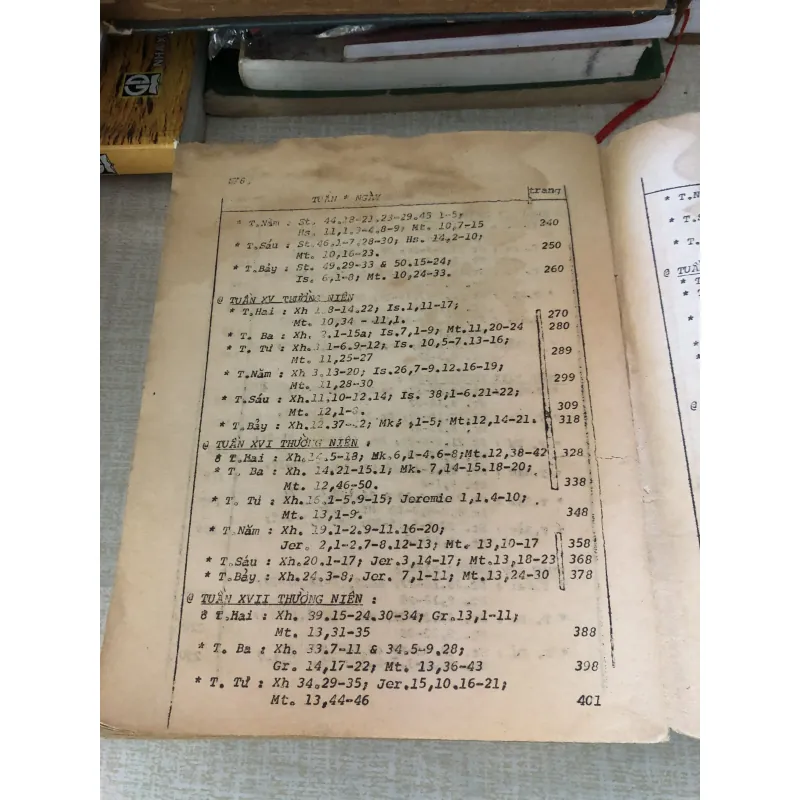 NHÂN
676.
TUẦN * NGÀY
trang
* T.Năm : St. 44.18-21.23-29.45 1-5;
Hs. 11,1.3-4.8-9; Mt. 10,7-15 240
* T.Sáu : St.46.1-7.28-30; Hs. 14,2-10;
Mt. 10,16-23. 250
* T.Bảy : St. 49.29-33 & 50.15-24;
Is. 6,1-8; Mt. 10,24-33. 260
@ TUẦN XV THƯỜNG NIÊN
* T.Hai : Xh 1.8-14.22; Is.1,11-17;
Mt. 10,34 - 11,1. 270
* T. Ba : Xh. 2.1-15a; Is.7,1-9; Mt.11,20-24 280
* T. Tư : Xh. 1-6.9-12; Is. 10,5-7.13-16;
Mt. 11,25-27 289
* T.Năm : Xh 3.13-20; Is.26,7-9.12.16-19;
Mt. 11,28-30 299
* T.Sáu : Xh.11,10-12.14; Is. 38;1-6.21-22;
Mt. 12,1-8. 309
* T.Bảy : Xh.12.37-42; Mk. ,1-5; Mt:12,14-21. 318
@ TUẦN XVI THƯỜNG NIÊN :
* T.Hai : Xh.14.5-18; Mk.6,1-4.6-8;Mt.12,38-42 328
* T. Ba : Xh. 14.21-15.1; Mk. 7,14-15.18-20;
Mt. 12,46-50. 338
* T. Tư : Xh.16.1-5.9-15; Jeremie 1,1.4-10;
Mt. 13,1-9. 348
* T.Năm : Xh. 19.1-2.9-11.16-20;
Jer. 2,1-2.7-8.12-13; Mt. 13,10-17 358
* T.Sáu : Xh.20.1-17; Jer.3,14-17; Mt.13,18-23 368
* T.Bảy : Xh.24.3-8; Jer. 7,1-11; Mt.13,24-30 378
@ TUẦN XVII THƯỜNG NIÊN :
* T.Hai : Xh. 39.15-24.30-34; Gr.13,1-11;
Mt. 13,31-35 388
* T. Ba : Xh. 33.7-11 & 34.5-9.28;
Gr. 14,17-22; Mt. 13,36-43 398
* T. Tư : Xh 34.29-35; Jer.15,10.16-21;
Mt. 13,44-46 401
* T.N
* T.S
* T.
@ TUẦN
* T
* T
*
*
*
@